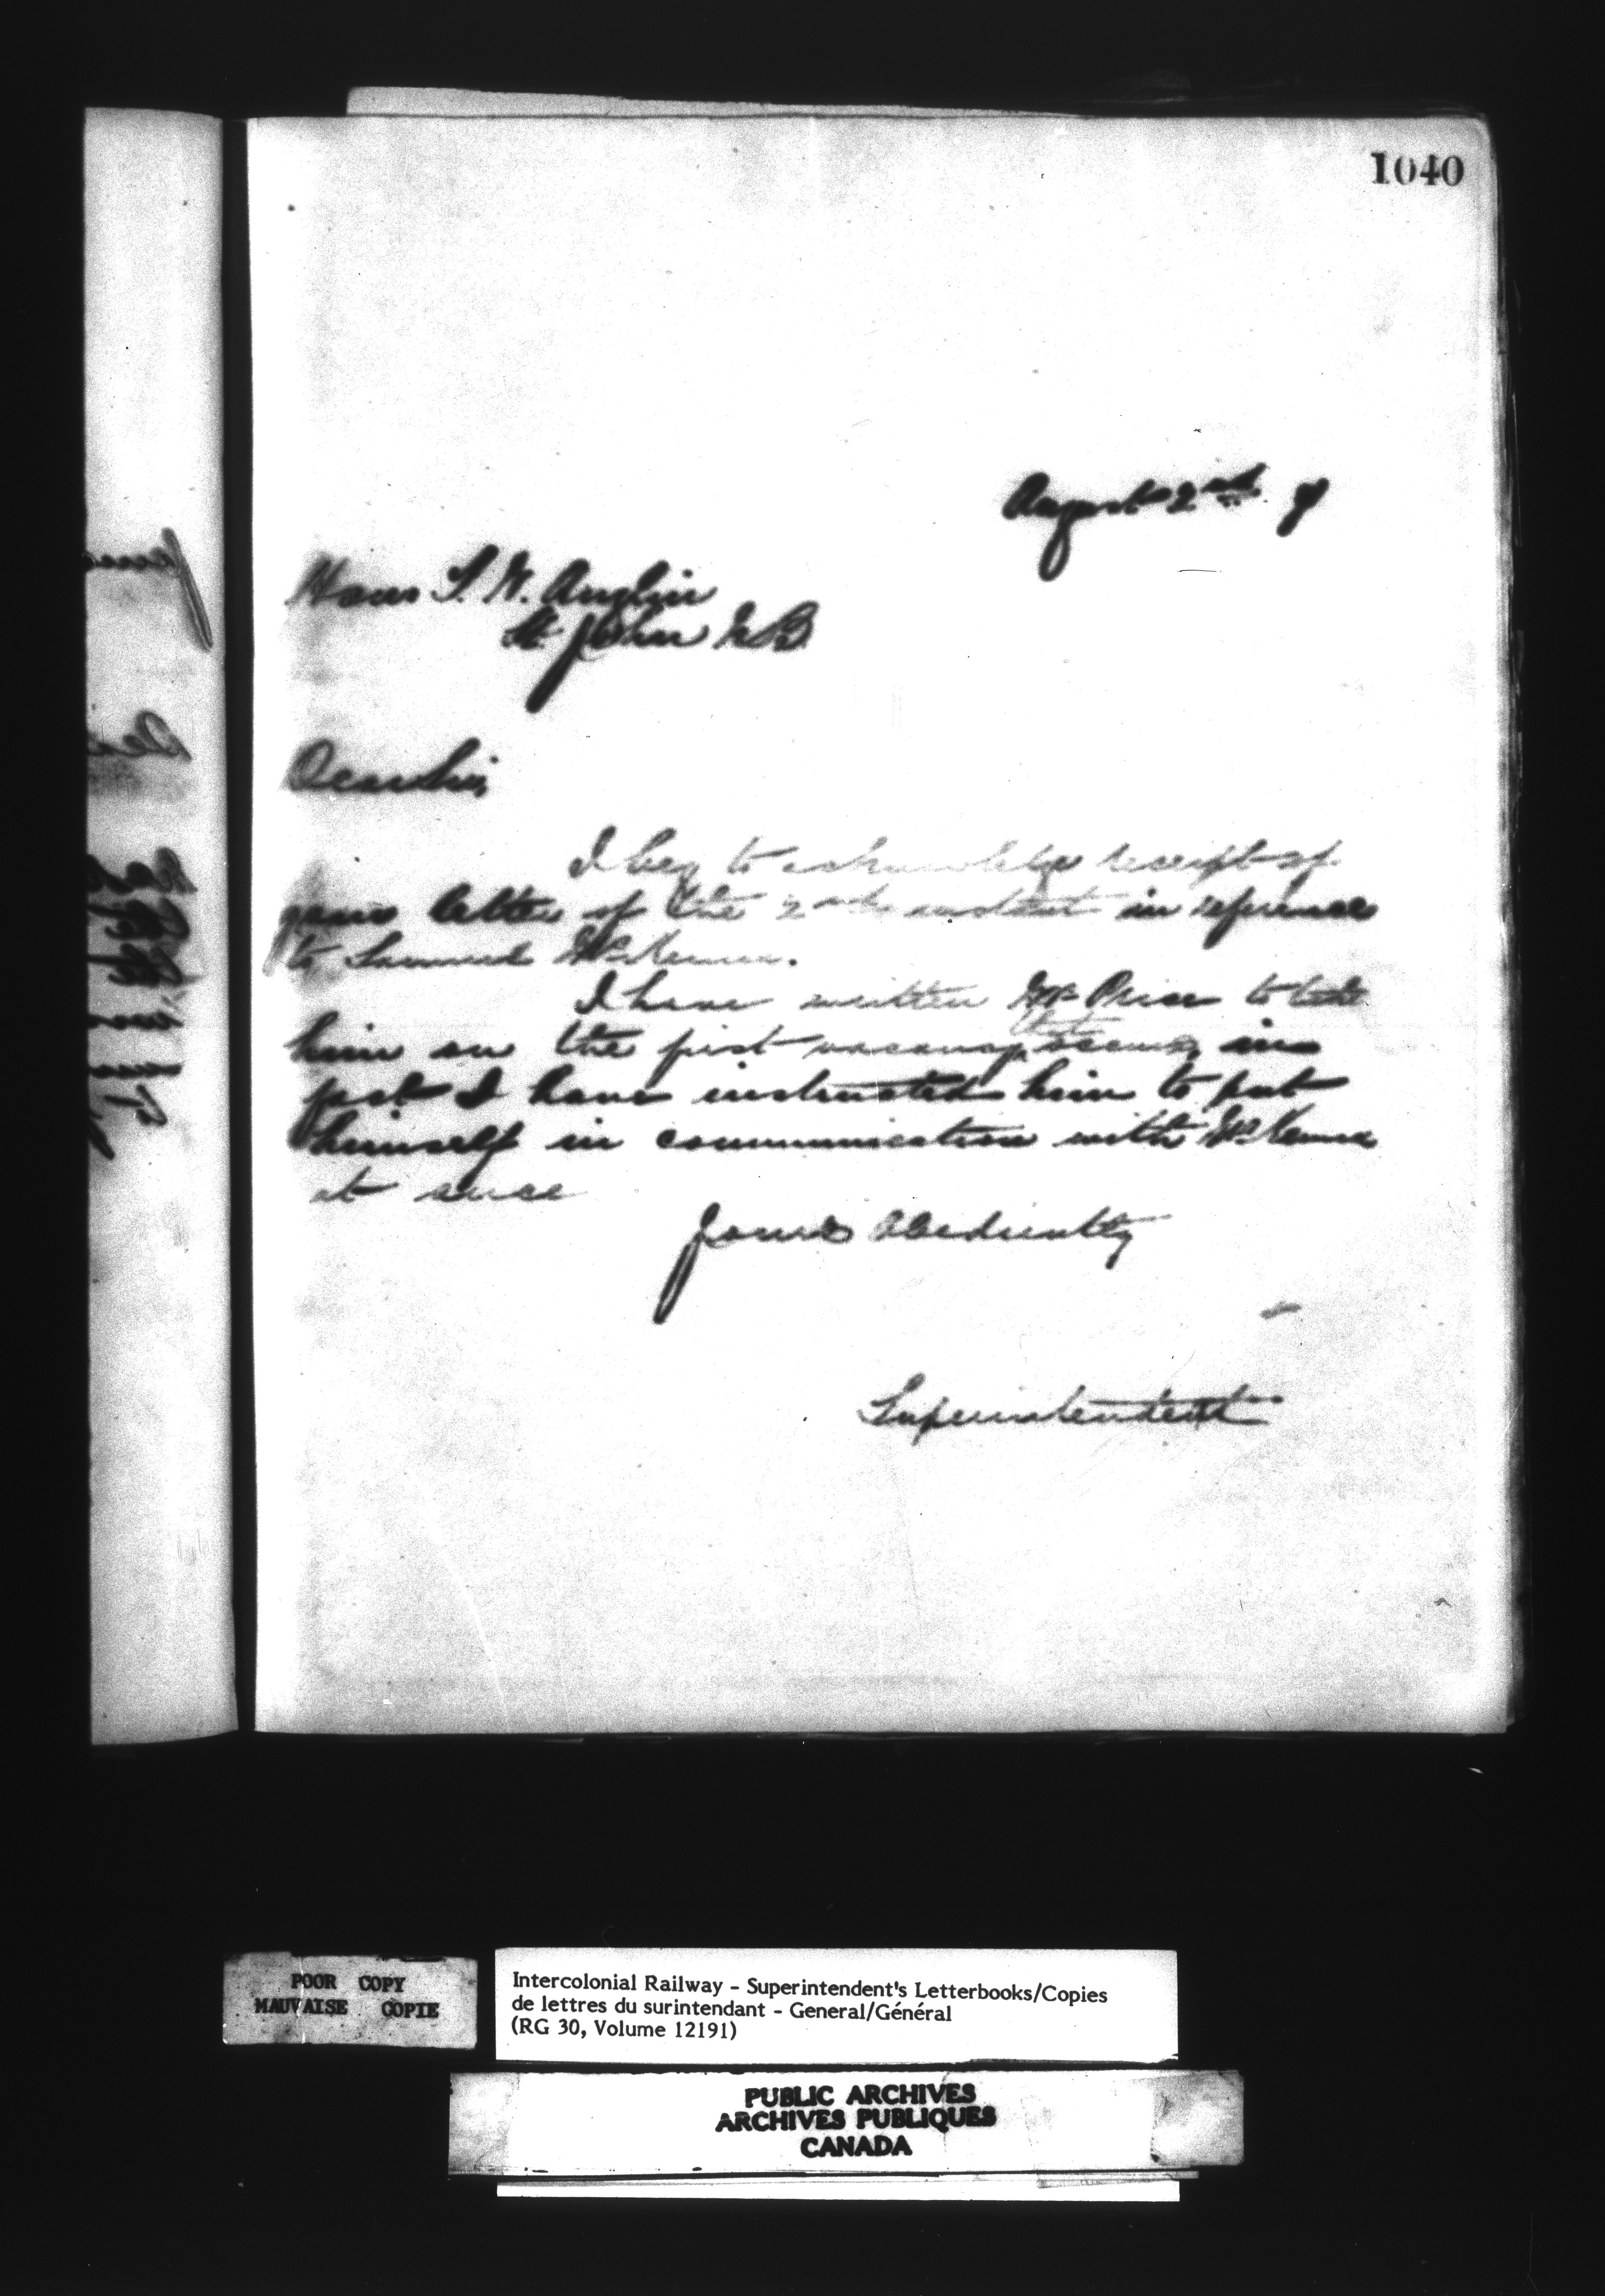 1040
August 2nd 7
Hon T. W. Anglin
St. John NB
Dear Sir,
I beg to acknowledge receipt of
your letter of the 2nd instant in reference
to Samuel McKenna.
I have written Mr Price to take
him on the first vacancy that occurs, in
fact I have instructed him to put
himself in communication with McKenna
at once
Yours Obediently
Superintendent
POOR COPY
MAUVAISE COPIE
Intercolonial Railway - Superintendent's Letterbooks/Copies
de lettres du surintendant - General/Général
(RG 30, Volume 12191)
PUBLIC ARCHIVES
ARCHIVES PUBLIQUES
CANADA